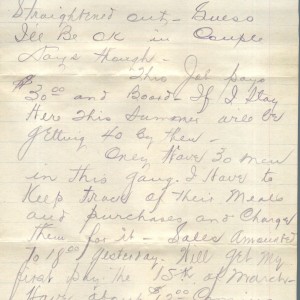 Straightened out – Guess
I'll Be OK in Couple
Days though –
This Job pays
$30.00 and Board – If I Stay
Here This Summer will be
getting 40 by then –
Only Have 30 men
in this gang. I Have to
Keep track of their Meals
and purchases and Charge
them for it – Sales Amounted
to 18.00 Yesterday. Will get My
first pay the 15th of March
Have about